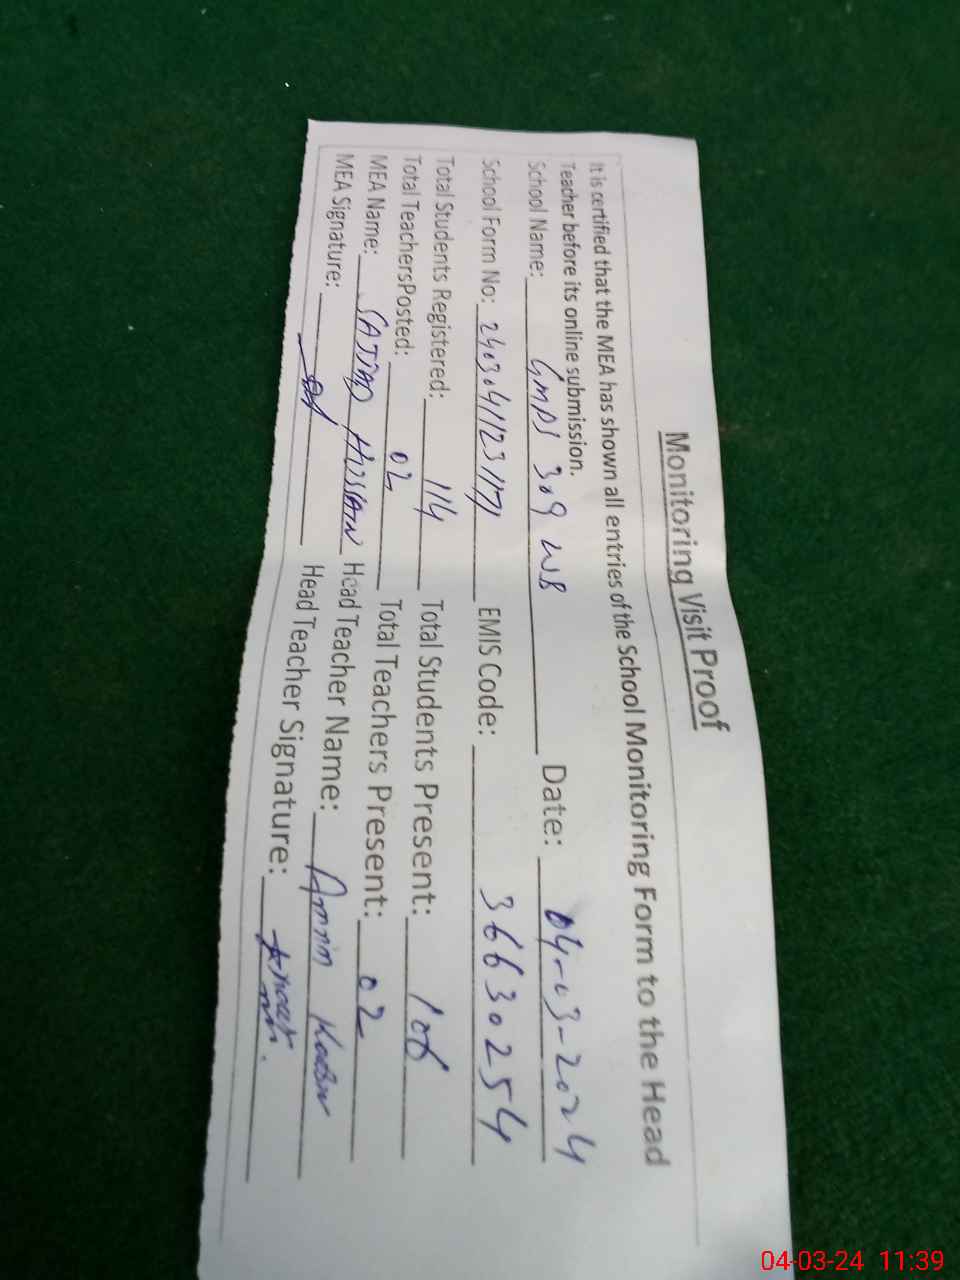 Monitoring Visit Proof
It is certified that the MEA has shown all entries of the School Monitoring Form to the Head
Teacher before its online submission.
School Name: GMPS 309 WB Date: 04-03-2024
School Form No: EMIS Code: 36630254
Total Students Registered: 114 Total Students Present: 106
Total TeachersPosted: 02 Total Teachers Present: 02
MEA Name: SAJJAD HUSSAIN Head Teacher Name:
MEA Signature: Head Teacher Signature:
04-03-24 11:39